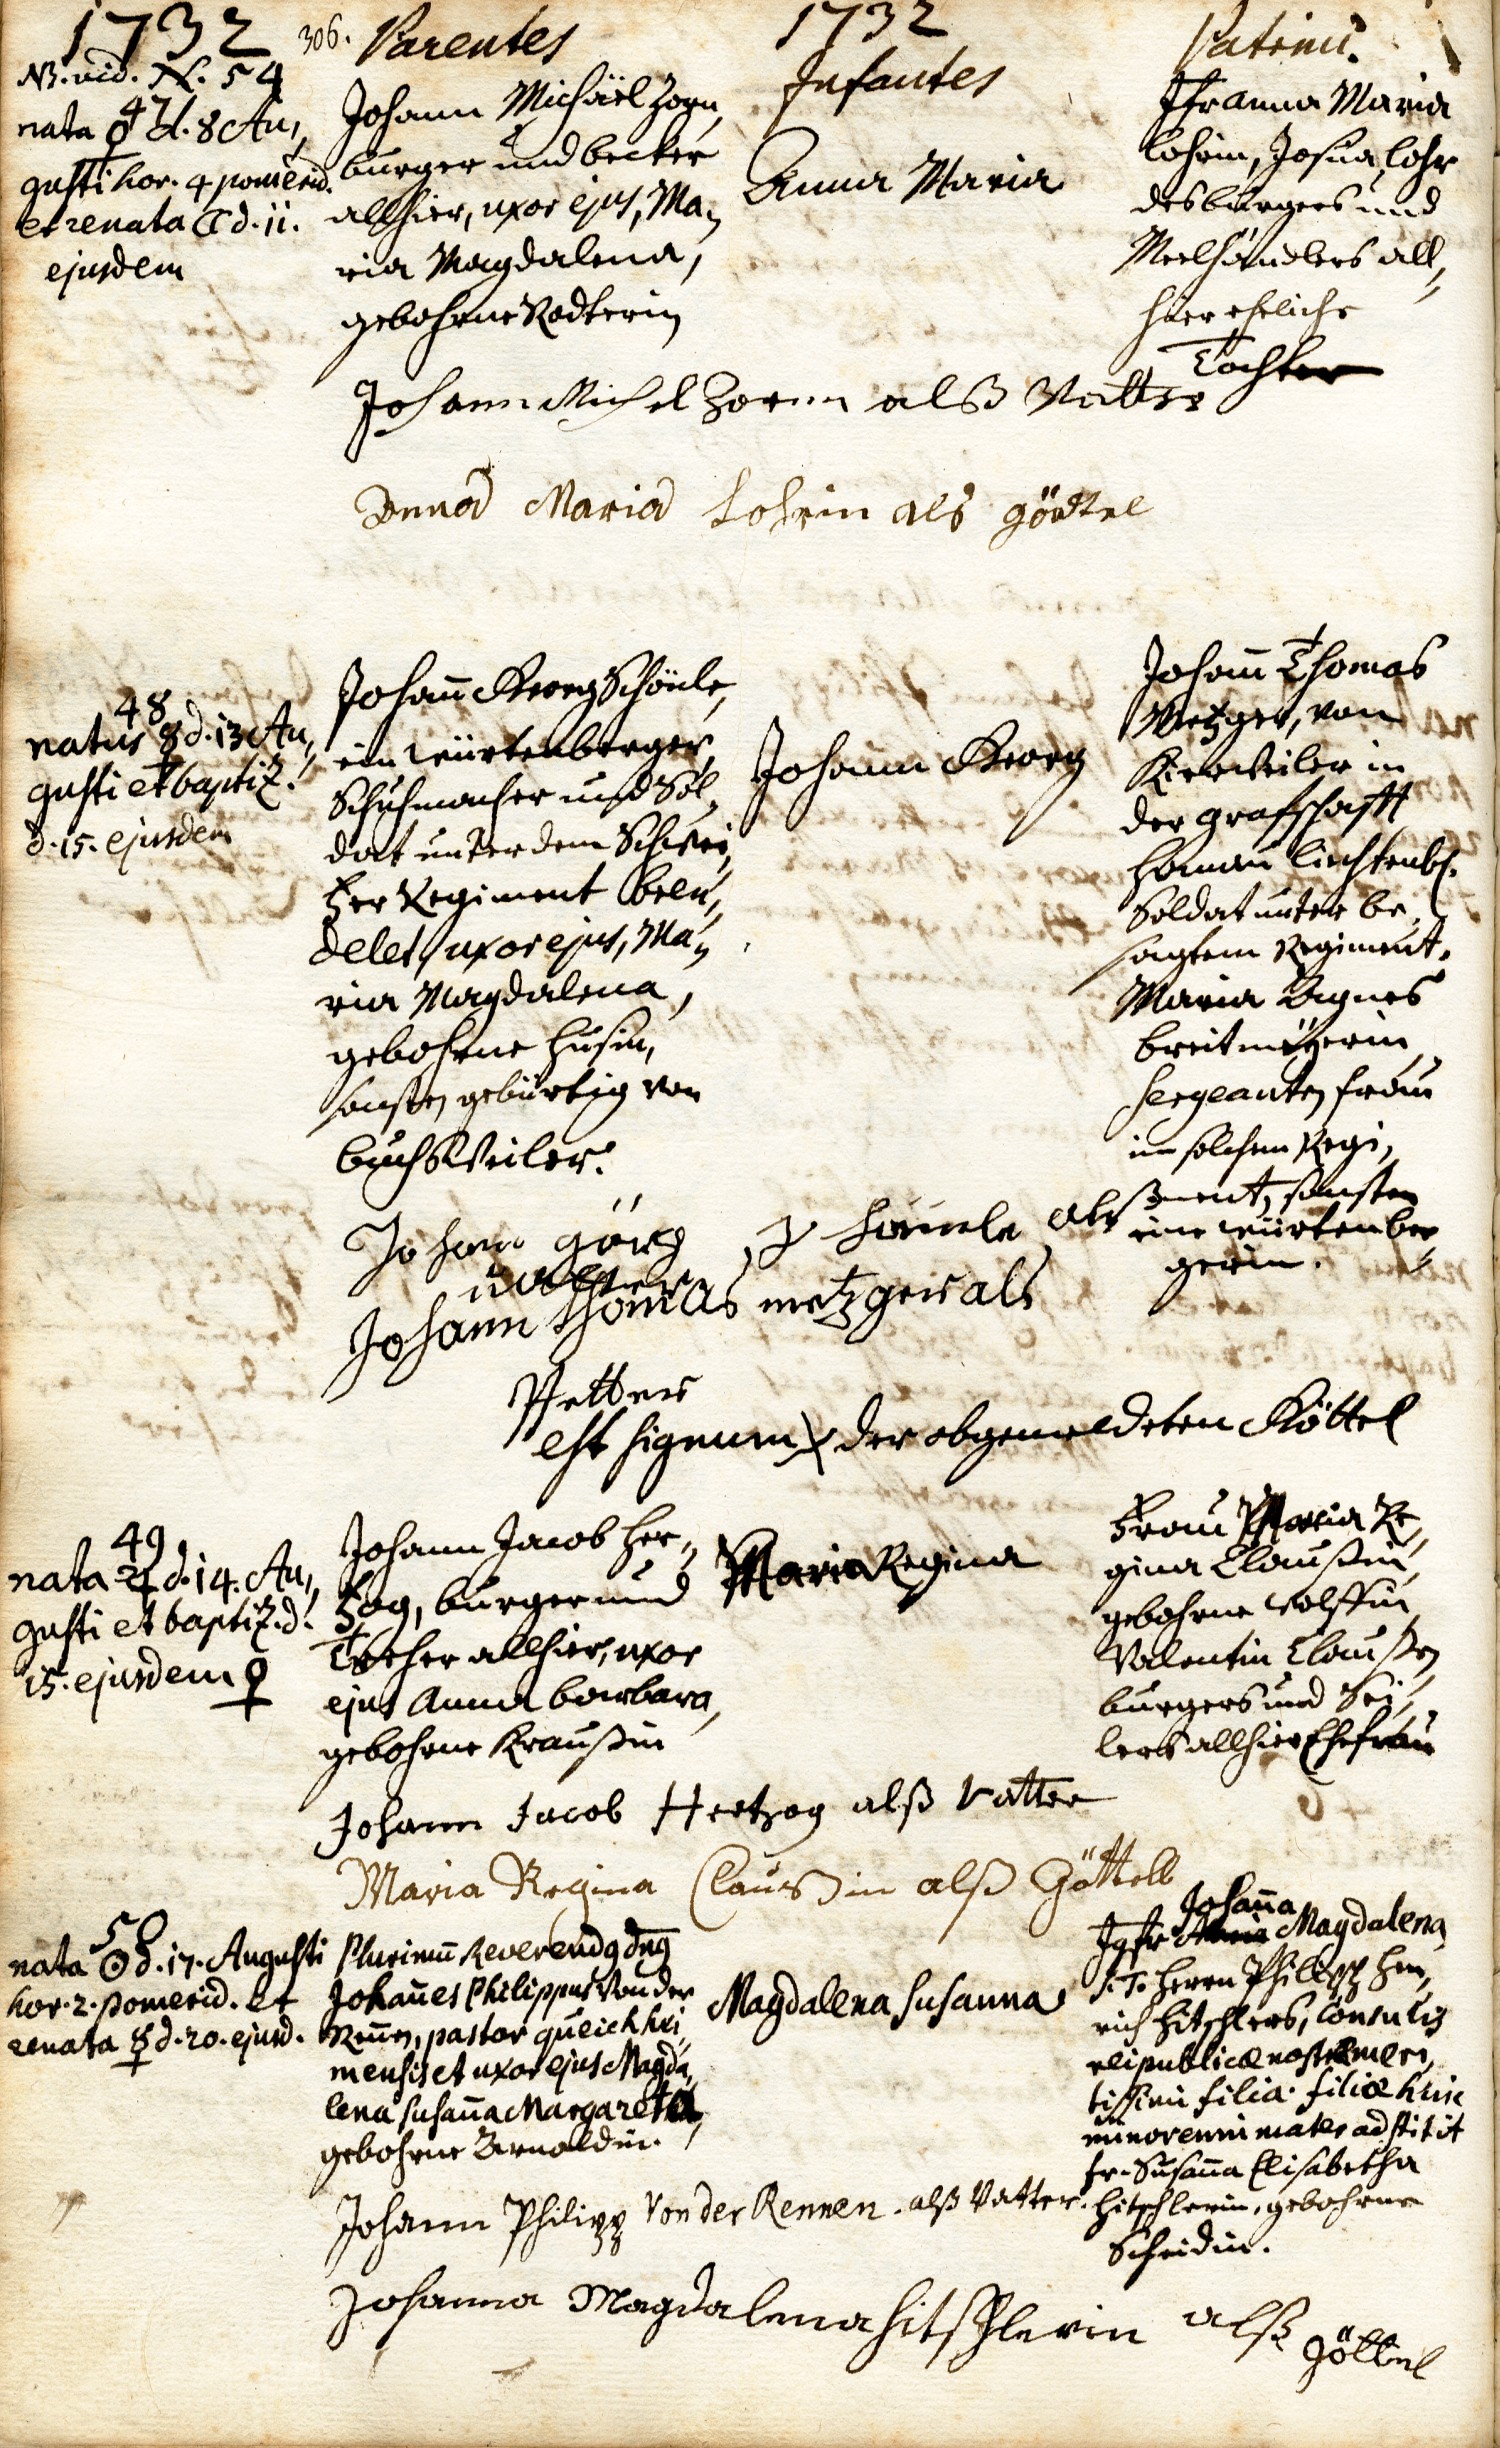 1732
306.
Parentes
1732
Infantes
Patrini.
NB. vid. N. 54
47
nata ♀ d. 8 Au„
gusti hor. 4 pomerid.
et renata ☾ d. 11.
ejusdem
Johann Michaël Zorn,
burger und becker
allhier, uxor ejus, Ma„
ria Magdalena,
gebohrne Rodterin
Anna Maria
Jfr Anna Maria
Lohrin, Josua Lohr
des burgers und
Meelhändlers all„
hier eheliche
Tochter
Johann Michel Zorn alß Vatter
Anna Maria Lohrin als göttel
48
natus ☿ d. 13 Au„
gusti et baptiz.
d. 15. ejusdem
Johann Georg Schönle,
ein Würtenberger,
Schuhmacher und Sol„
dat unter dem Schwei„
tzer Regiment
uxor ejus, Ma„
ria Magdalena,
gebohrne Husin,
sonsten gebürtig von
buchsweiler.
Johann Georg
Johann Thomas
Metzger, von
Kirrweiler in
der graffschafft
Hanau Liechtenb.
Soldat unter be„
sagtem Regiment.
Maria Agnes
breitmeyerin
Sergeanten frau
in solchem Regi„
ment, sonsten
eine Würtenber„
gerin.
Johann görg als
vatter
Johann thomas metzger als
Petter
est signum X der obgemeldeten Göttel
49
nata ♃ d. 14. Au„
gusti et baptiz. d.
15. ejusdem ♀
Johann Jacob Her„
tzog, burger und
allhier, uxor
ejus Anna barbara,
gebohrne Kraußin
Maria Regina
Frau Maria Re„
gina Claußin,
gebohrne Wolffin
Valentin Claußen
burgers und Sei„
lers allhier Ehefrau
Johann Jacob Hertzog alß Vatter
Maria Regina Claussin alß Göttell
50
nata ☉ d. 17. Augusti
hor. 2. pomerid. et
renata ☿ d. 20. ejusd.
Plurimū Reverendq dnq
Johan̄es Philippus Von der
Ren̄en, pastor queichhei„
mensis et uxor ejus Magda„
lena Susan̄a Margaretha,
gebohrne Arnoldin.
Magdalena Susanna
Johan̄a
Jgfr Maria Magdalena,
S. T. Herrn Philipp Hen„
rich Hitschlers, Consulis
reipublicæ nostræ meri„
tissimi filia. filiæ huic
minorenni mater adstitit
fr. Susan̄a Elisabetha
Hitschlerin, gebohrne
Scheidin.
Johann Philipp Von der Rennen. alß Vatter.
Johanna Magdalena Hitschlerin alß
göttel